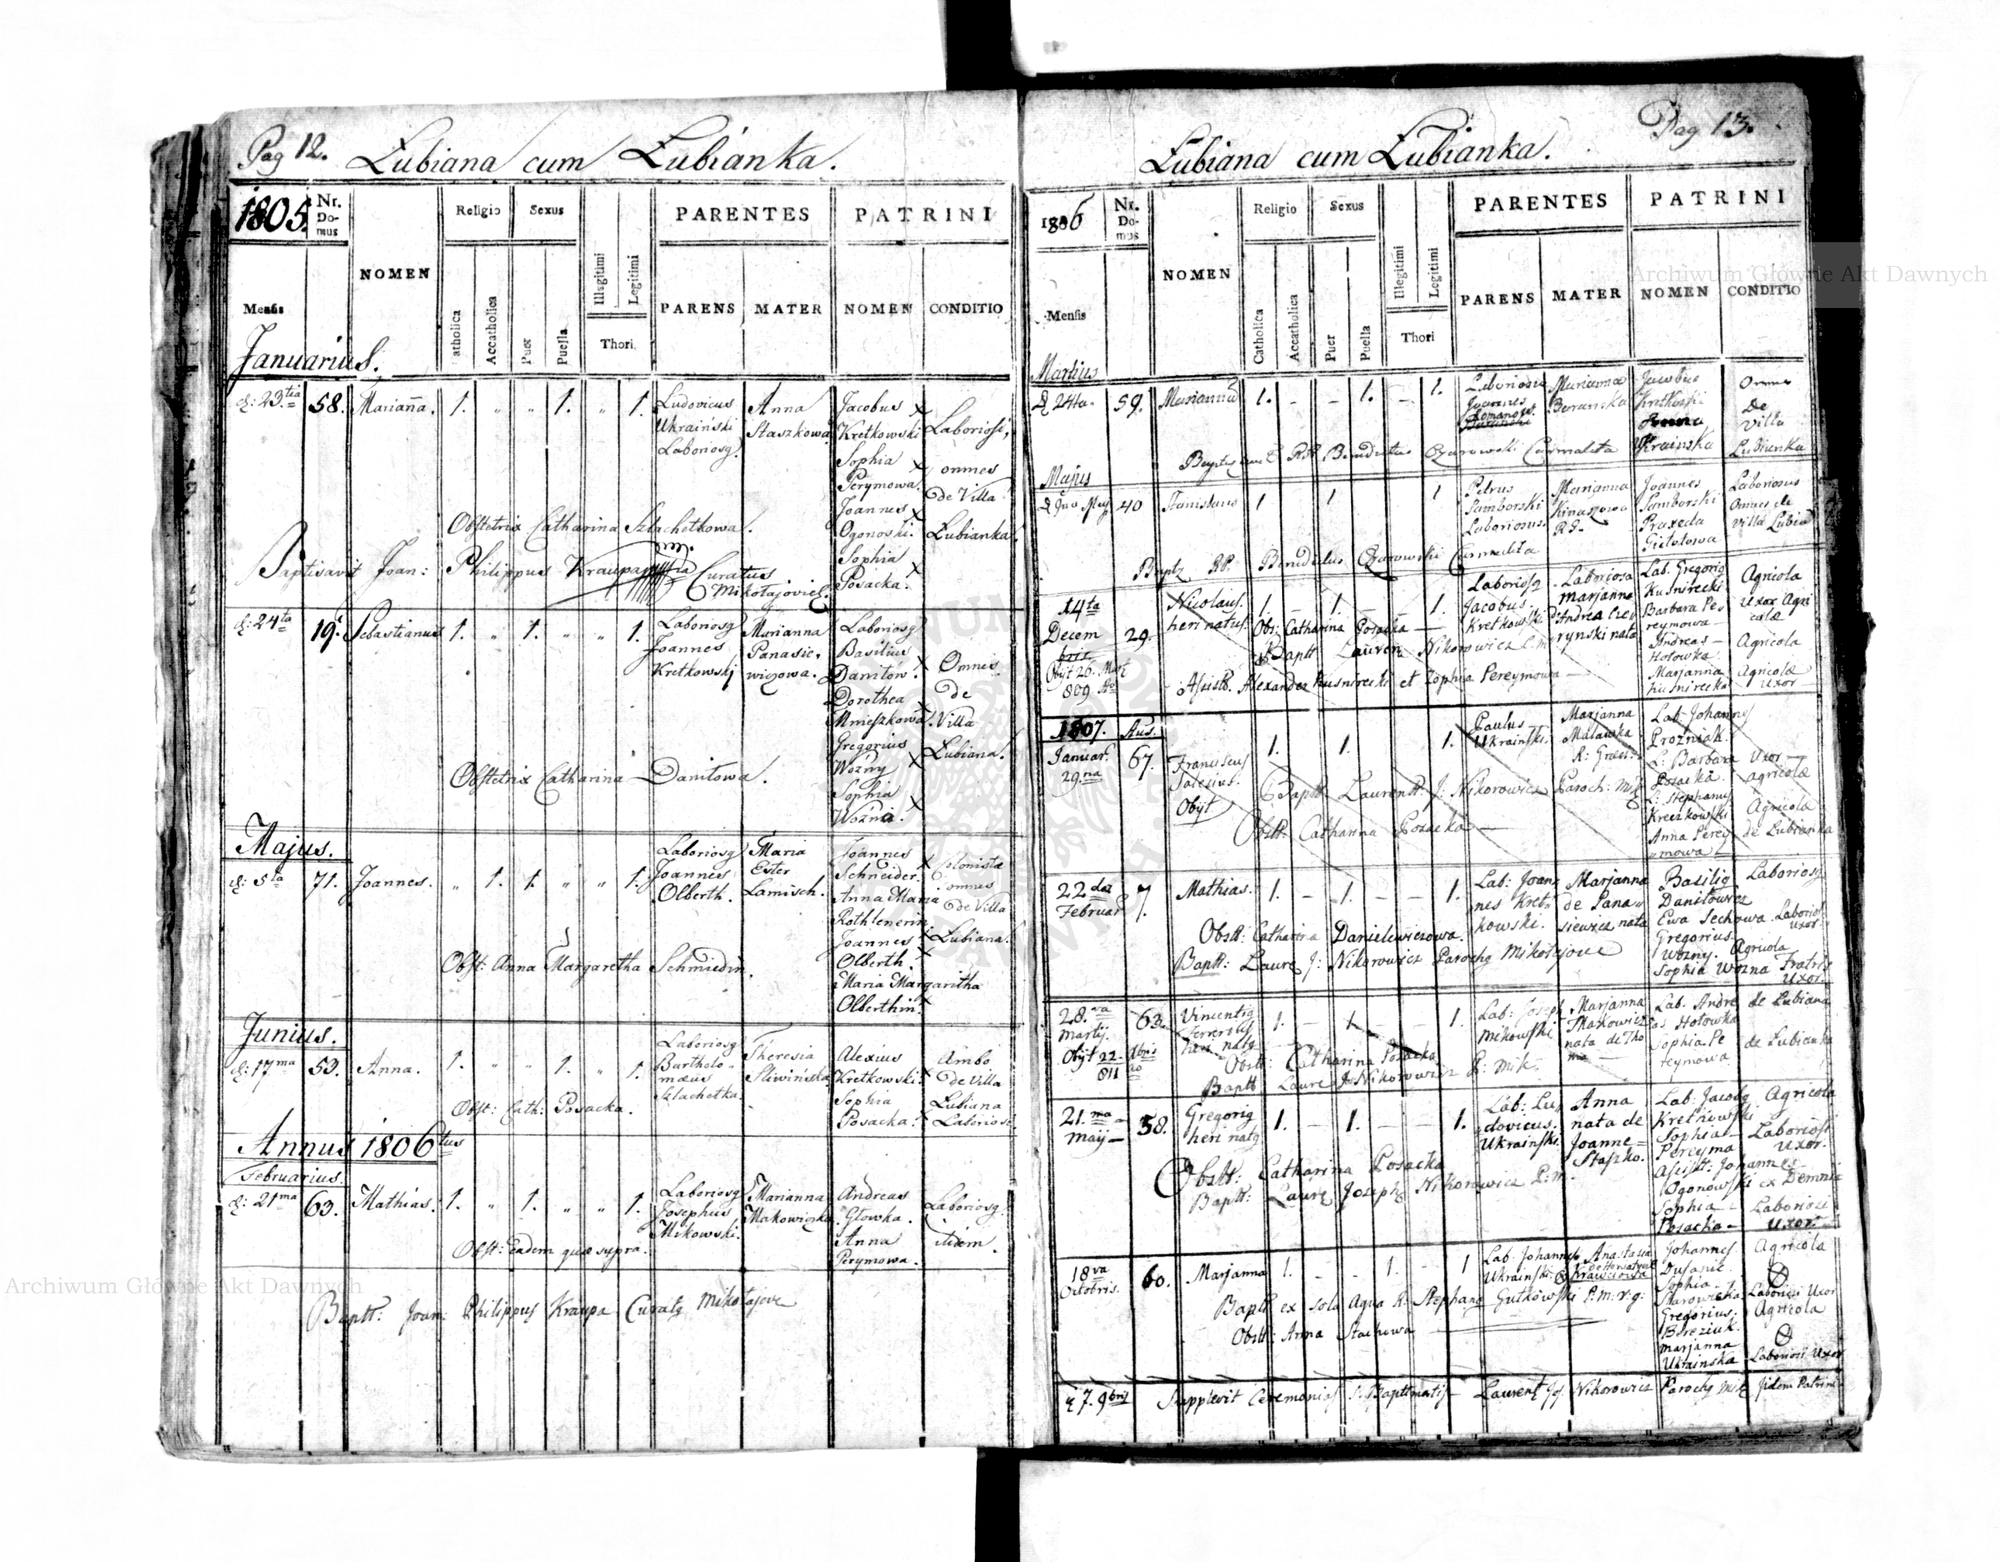 Pag 12. Lubiana cum Lubianka.
1805. Nr. Domus
NOMEN
Religio
Sexus
PARENTES
PATRINI
Mensis
Catholica
Accatholica
Puer
Puella
Illegitimi
Legitimi
Thori
PARENS
MATER
NOMEN
CONDITIO
Januarius.
d: 23.tia 58. Marianna. 1. " " 1. " 1.
Ludovicus
Ukrainski
Laboriosg
Anna
Staszkowa
Jacobus
Kretkowski
Sophia
Perymowa.
Joannes
Ogonoski.
Sophia
Posacka.
Laboriosi,
omnes
de Villa
Lubianka.
Obstetrix Catharina Szlachetkowa.
Baptisavit Joan: Philippus Kraupa Curatus
Mikołajovien.
d: 24ta 19. Sebastianus 1. " 1. " " 1.
Laboriosg
Joannes
Kretkowski
Marianna
Panasie,
wiczowa.
Laboriosg
Basilius
Danitów.
Dorothea
Mnieszkowa
Gregorius
Wozny
Sophia
Wozna.
Omnis
de
Villa
Lubiana.
Obstetrix Catharina Danitowa.
Majus.
d: 5ta 71. Joannes. " 1. 1. " " 1.
Laboriosg
Joannes
Olberth.
Maria
Ester
Lamisch.
Joannes
Schneider.
Anna Maria
Rothlenerin
Joannes
Olberth.
Maria Margaritha
Olberthin.
Colonistæ
omnes
de Villa
Lubiana.
Obst: Anna Margaretha Schmiedin.
Junius.
d: 17ma 53. Anna. 1. " " 1. " 1.
Laboriosg
Bartholo-
mæus
Szlachetka.
Theresia
Sliwińska
Alexius
Kretkowski.
Sophia
Posacka.
Ambo
de Villa
Lubiana
Laboriosi.
Obst: Cath: Posacka.
Annus 1806tus
Februarius.
d: 21ma 63. Mathias. 1. " 1. " " 1.
Laboriosg
Josephus
Mikowski.
Marianna
Makowiczka
Andreas
Głowka.
Anna
Perymowa.
Laboriosg.
itidem.
Obst: Eadem quæ supra.
Baptt: Joan: Philippus Kraupa Curatg Mikołajov
Pag 13.
Lubiana cum Lubianka.
1806 Nr. Domus
NOMEN
Religio
Sexus
PARENTES
PATRINI
Mensis
Catholica
Accatholica
Puer
Puella
Illegitimi
Legitimi
Thori
PARENS
MATER
NOMEN
CONDITIO
Martius
d 24ta. 59. Marianna 1. - - 1. - 1.
Laboriosus
Joannes
Romanow.
Marianna
Baranska
Jacobus
Kretkoski
Ukrainska
Omnes
De
Villa
Lubianka
Baptisavit RP Benedictus Ozarowski Carmelita
Majus
40 Stanislaus 1 1 1
Petrus
Samborski
Laboriosus
Marianna
R.G.
Joannes
Samborski
Praxeda
Laboriosus
Omnes de
Villa Lubia
Baptz RP. Benedictus Ozarowski Carmelita
14ta
Decem
bris
29. Nicolaus.
heri natus. 1. - 1. - - 1.
Obyt 26. Mart
809 Ao
Laboriosg
Jacobus
Kretkowski
Laboriosa
Marjanna
d'Andrea Cze
rynski nata
Lab. Gregorig
Kusnirecki
Barbara Pe
reymowa -
Andreas -
Hotowka.
Marjanna
Kusnirecka
Agricola
Uxor Agri
colæ
Agricola
Agricolæ
Uxor
Obs: Catharina Posacka -
Baptt Lauren Nikorowicz P.m.
Assist. Alexander Kusnirecki et Zophia Pereymowa -
1807. Aus.
Januar.
29.na
67. Franciscus
Salesius.
Obyt
1. 1. 1.
Paulus
Ukrainski.
Marjanna
Malawska
R: Graec:
Lab. Johannes
Prozniak.
L: Barbara
Posacka.
L: Stephanus
Kreczkowski
Anna Perey
mowa
Uxor
agricolæ
Agricola
de Lubianka
Baptt Laurentt J: Nikorowicz Paroch: Mik
Obstt: Catharina Posacka -
22da
Februar 7. Mathias. 1. - 1. - - 1.
Lab: Joan
nes Kret-
kowski.
Marjanna
de Pana-
siewicz nata
Basilig
Danitowicz
Ewa Sechowa
Gregorius
Wozny.
Sophia Wozna
Laboriosg
Laborios
Uxor.
Agricola
Fratris
Uxor.
Obstt: Catharina Danielewiczowa.
Baptt: Laurg J: Nikorowicz Parochg Mikołajove
28.va
Martij.
63. Vincentig
Fererius
heri natg 1. - 1. - - 1.
Obyt 22. Xbris
811 ao
Lab: Joseph
Mikowski.
Marjanna
Makowicz
nata de Tho
ma -
Lab. Andre
as Hotowka
Sophia Pe
reymowa
de Lubiana
de Lubianka
Obstt: Catharina Posacka
Baptt Laurg Jo Nikorowicz P: Mik.
21.ma
Maij - 58. Gregorig
heri natg 1. - 1. - - 1.
Lab: Lu,
dovicus.
Ukrainski.
Anna
nata de
Joanne=
Staszko.
Lab: Jacobg
Kretkowski
Sophia -
Pereyma
Assist: Johannes
Ogonowski ex Demnia
Sophia -
Posacka -
Agricola
Laboriosi
Uxor.
Laboriosi
Uxor.
Obstt: Catharina Posacka
Baptt: Laurg Josephg Nikorowicz P:m.
18va
Octobris. 60. Marjanna 1. - - 1. - 1
Lab: Johannes
Ukrainski.
Anastasia
Krawcowa
Johannes
Dufanie.
Sophia
Skarowicka
Gregorius.
Bereziuk.
Marjanna
Ukrainska
Agricola
Laboriosi Uxor
Agricola
Laboriosi Uxor
Baptt ex sola Aqua R: Stephang Gutkowski P:m: r.g:
Obstt: Anna Stachowa
27. 9bris Supplevit Ceremonias Baptismatis - Laurent Jos Nikorowicz Parochg Mik Jidem Patrini -
Archiwum Główne Akt Dawnych
Archiwum Główne Akt Dawnych